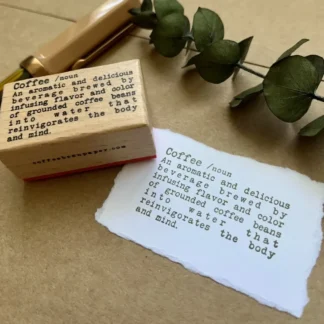 Coffee /noun
An aromatic and delicious
beverage brewed by
infusing flavor and color
of grounded coffee beans
into water that
reinvigorates the body
and mind.
Coffee /noun
An aromatic and delicious
beverage brewed by
infusing flavor and color
of grounded coffee beans
into water that
reinvigorates the body
and mind.